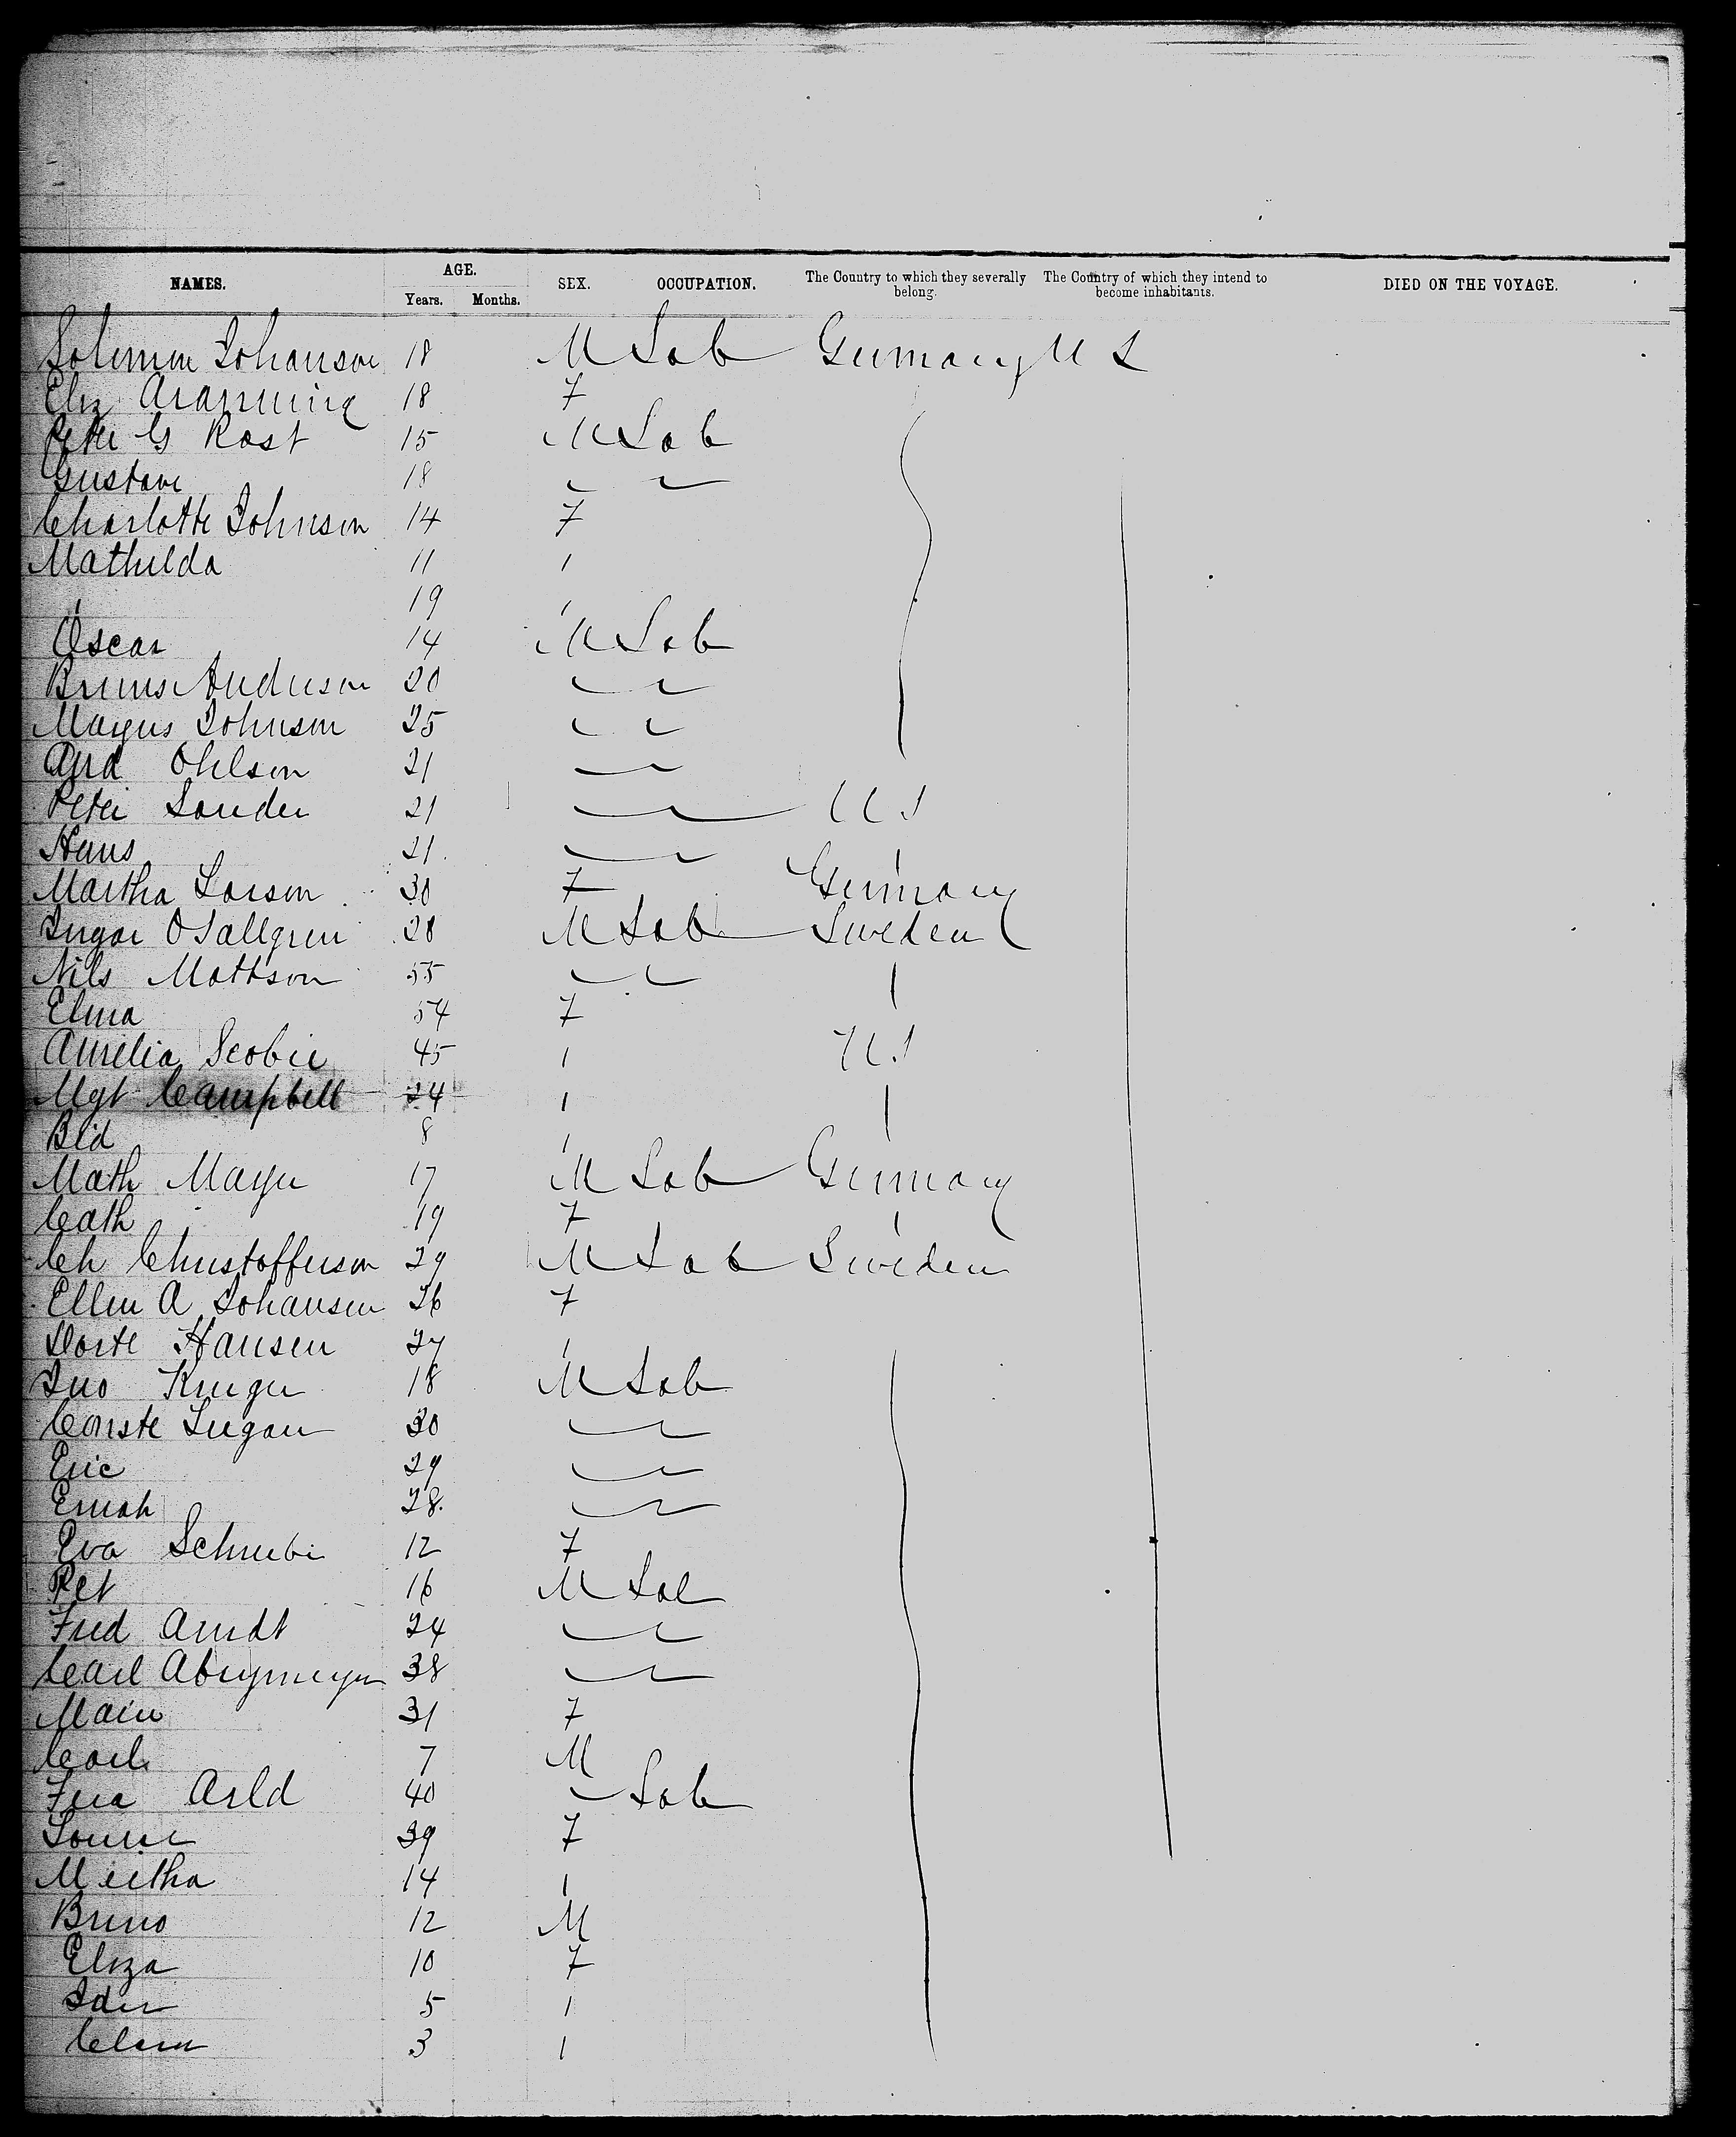 NAMES. AGE. SEX. OCCUPATION. The Country to which they severally belong. The Country of which they intend to become inhabitants. DIED ON THE VOYAGE.
Years. Months.
Johanson 18 M Lab Germany U S
Eliz 18 F
Peter G Rost 15 M Lab
Gustave 18
Charlotte Johnson 14 F
Mathilda 11
" 19
Oscar 14 M Lab
Anderson 20
Magnus Johnson 25
And Ohlson 21
Peter Sander 21 U S
Hans 21
Martha Larson 30 F Germany
Ingar O Sallgren 28 M Lab Sweden
Nils Mattson 55
Elina 54 F
Amelia Scobie 45 U S
Mgt Campbell 24
Bid 8
Math Mayer 17 M Lab Germany
Cath 19 F
Ch Christofferson 29 M Lab Sweden
Ellen A Johansen 26 F
Dorte Hansen 27
Jno Kruger 18 M Lab
30
Eric 29
28
Eva 12 F
Pet 16 M Lab
Fred Arndt 24
Carl 38
Marie 31 F
Carl 7 M
Arld 40 Lab
Louise 39 F
14
Bruno 12 M
Eliza 10 F
Ida 5
Clara 3